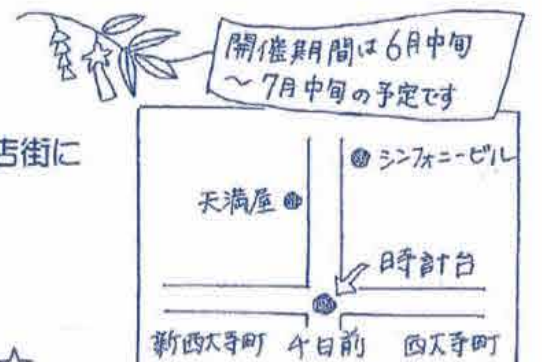 開催期間は6月中旬
～7月中旬の予定です
店街に
シンフォニービル
天満屋
時計台
新西大寺町 千日前 西大寺町